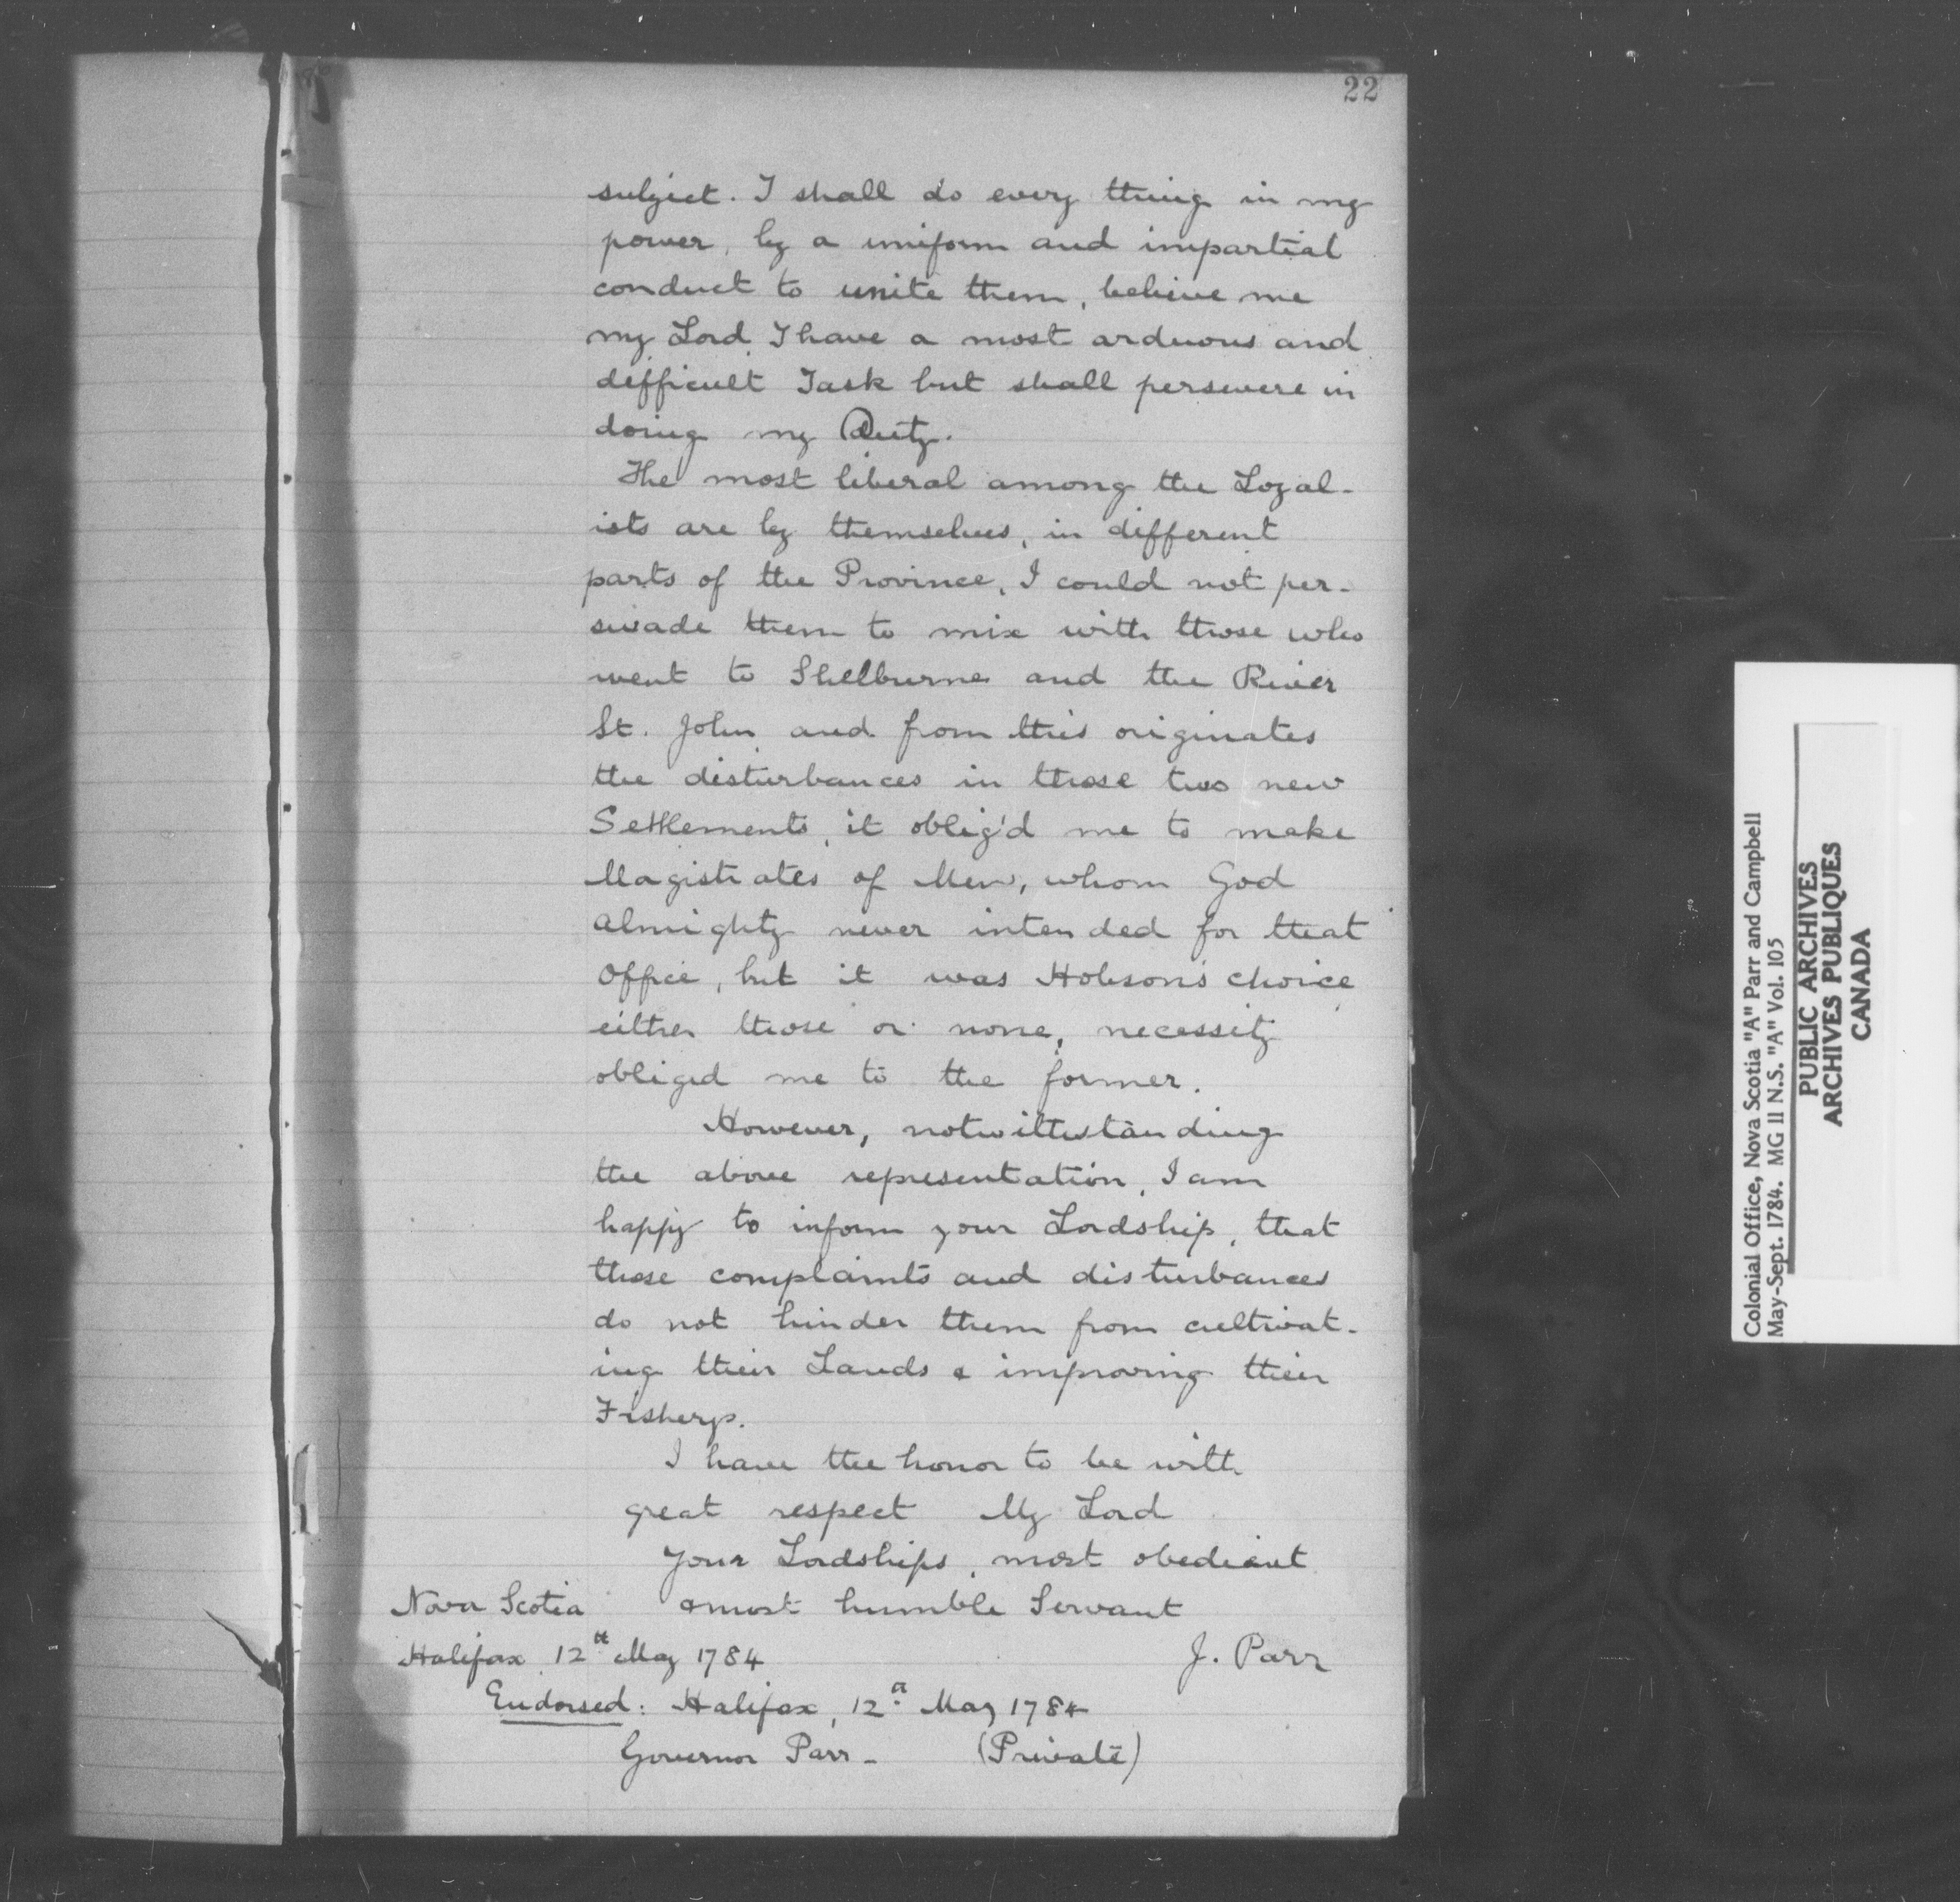 22
subject. I shall do every thing in my
power, by a uniform and impartial
conduct to unite them, believe me
my Lord I have a most arduous and
difficult Task but shall persevere in
doing my Duty.
The most liberal among the Loyal-
ists are by themselves, in different
parts of the Province, I could not per-
swade them to mix with those who
went to Shelburne and the River
St. John and from this originates
the disturbances in those two new
Settlements, it oblig'd me to make
Magistrates of Men, whom God
almighty never intended for that
Office, but it was Hobson's choice
either those or none, necessity
obliged me to the former.
However, notwithstanding
the above representation, I am
happy to inform your Lordship, that
these complaints and disturbances
do not hinder them from cultivat-
ing their Lands & improving their
Fisherys.
I have the honor to be with
great respect My Lord
Your Lordships, most obedient
Nova Scotia & most humble Servant
Halifax 12th May 1784 J. Parr
Endorsed: Halifax, 12th May 1784
Governor Parr - (Private)
Colonial Office, Nova Scotia "A" Parr and Campbell
May-Sept. 1784. MG 11 N.S. "A" Vol. 105
PUBLIC ARCHIVES
ARCHIVES PUBLIQUES
CANADA